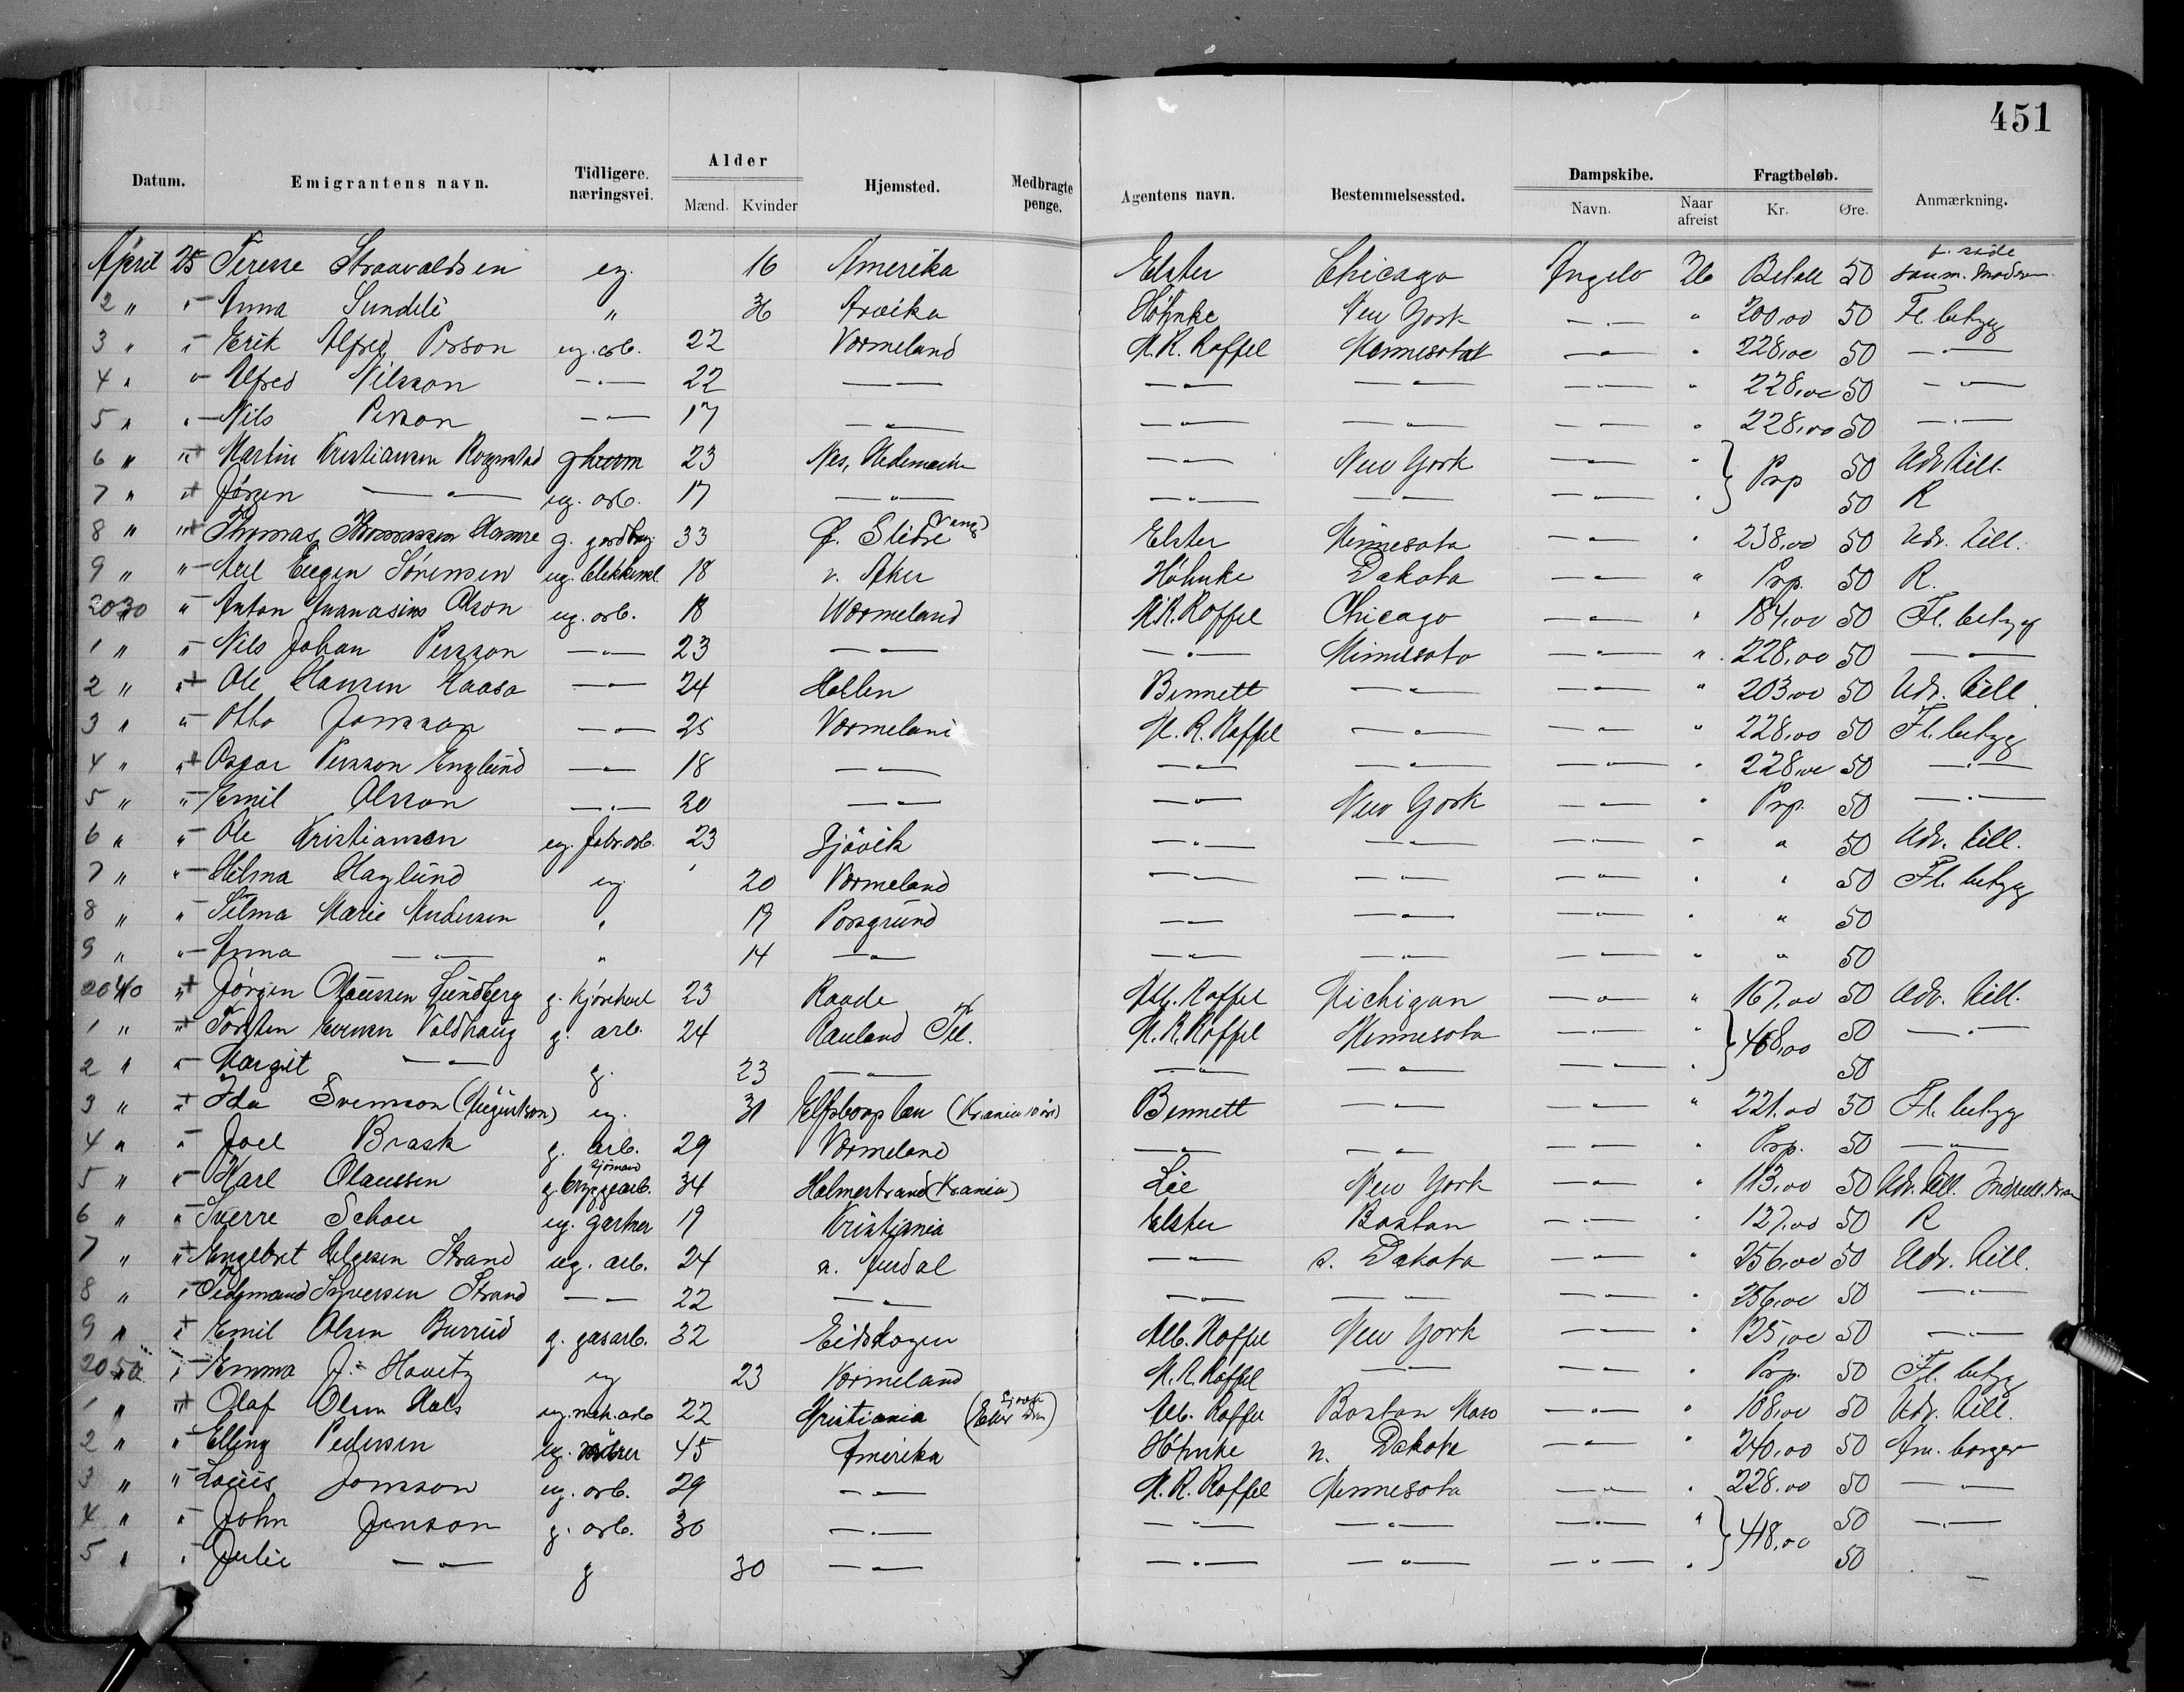 451
Datum. Emigrantens navn. Tidligere. næringsvei. Alder Mænd. Kvinder Hjemsted. Medbragte penge. Agentens navn. Bestemmelsessted. Dampskibe. Navn. Naar afreist Fragtbeløb. Kr. Øre. Anmærkning.
April 25 Terese ug. 16 Amerika Elster Chicago Ingelo 26 Betalt 50
2 " " Anna Sundeli " 36 Arvika Höhnke New York — " — " 200,00 50 Fl. betyg
3 " " Erik Alfred Person ug. arb. 22 Vermeland M. R. Roffel Minnesota — " — " 228,00 50 — " —
4 " " Alfred Nilsson — " — 22 — " — — " — — " — — " — " 228,00 50 — " —
5 " " Nils Person — " — 17 — " — — " — — " — — " — " 228,00 50 — " —
6 " " + Martin Kristiansen Rognstad g. 23 Nes, Hedemarken — " — New York — " — " } Prp 50 Udv. till.
7 " " + Jörgen — " — ug. arb. 17 — " — — " — — " — — " — " 50 R
8 " " + Thomas Thomassen Hamre g. gardbrug 33 Ø. Slidre (Vang) Elster Minnesota — " — " 238,00 50 Udv. till.
9 " " Axel Eugen Sørensen ug. blikkensl. 18 v. Aker Höhnke Dakota — " — " Prp. 50 R.
2030 " Anton Ananasius Olson ug. arb. 18 Wermeland M. R. Roffel Chicago — " — " 184,00 50 Fl. betyg
1 " " Nils Johan Persson — " — 23 — " — — " — Minnesota — " — " 228,00 50 — " —
2 " " + Ole Hansen Haasa — " — 24 Hallen Bennett — " — — " — " 203,00 50 Udv. till.
3 " " Otto Jonsson — " — 25 Vermeland M. R. Roffel — " — — " — " 228,00 50 Fl. betyg
4 " " + Oskar Persson Englund — " — 18 — " — — " — — " — — " — " 228,00 50 — " —
5 " " Emil Olsson — " — 20 — " — — " — New York — " — " Prp. 50 — " —
6 " " Ole Kristiansen ug. fabr. arb. 23 Gjövik — " — — " — — " — " " 50 Udv. till.
7 " " Hilma Haglund ug. 20 Vermeland — " — — " — — " — " " 50 Fl. betyg
8 " " Selma Marie Andersen " 19 Porsgrund — " — — " — — " — " " 50
9 " " Anna — " — " 14 — " — — " — — " — — " — " " 50
2040 " + Jörgen Olaussen Lundberg g. kjørekarl 23 Raade Alb. Roffel Michigan — " — " 167,00 50 Udv. till.
1 " " + Torsten Evensen Voldhaug g. arb. 24 Rauland Tel. M. R. Roffel Minnesota — " — " } 468,00 50 — " —
2 " " Margit — " — g. 23 — " — — " — — " — — " — " 50
3 " " + Ida Svensson (Augustson) ug. 31 Elfsborgs län (Krania 10 år) Bennett — " — — " — " 221.00 50 Fl. betyg
4 " " Joel Brask g. arb. 29 Vermeland — " — — " — — " — " Prp. 50 — " —
5 " " Karl Olaussen g. bryggearb. sjømand 34 Holmestrand (Krania) Lie New York — " — " 113,00 50 Udv. till.
6 " " Sverre Schou ug. gartner 19 Kristiania Elster Boston — " — " 127,00 50 R
7 " " + Engebret Helgesen Strand ug. arb. 24 n. Aurdal — " — s. Dakota — " — " 256,00 50 Udv. till.
8 " " Sidsmand Syversen Strand — " — 22 — " — — " — — " — — " — " 256,00 50 — " —
9 " " + Emil Olsen Burrud g. gasarb. 32 Eidskogen Alb. Roffel New York — " — " 125,00 50 — " —
2050 " Emma J. Hovitz ug 23 Vermeland M. R. Roffel — " — — " — " Prp. 50 Fl. betyg
1 " " + Olaf Olsen Hals ug. mek. arb 22 Kristiania Alb. Roffel Boston Mass — " — " 108,00 50 Udv. till.
2 " " Elling Pedersen ug. 45 Amerika Höhnke n. Dakota — " — " 240,00 50 Am. borger
3 " " Louis Jonsson ug. arb. 29 — " — M. R. Roffel Minnesota — " — " 228,00 50 — " —
4 " " John Jenson g. arb. 30 — " — — " — — " — — " — " } 418,00 50 — " —
5 " " Julie — " — g 30 — " — — " — — " — — " — " 50